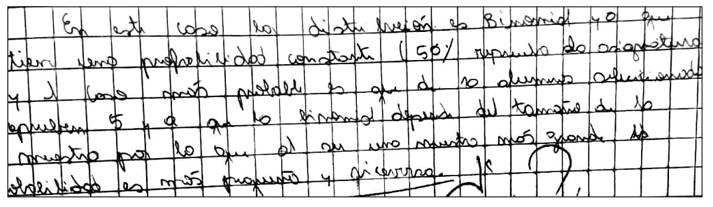 En este caso la distribución es Binomial ya que
tiene una probabilidad constante (50% reprueba la asignatura
y el caso más probable es que de 10 alumnos seleccionado
aprueben 5 y a que la binomial depende del tamaño de la
muestra por lo que al ser una muestra más grande la
obabilidad es más pequeña y viceversa.